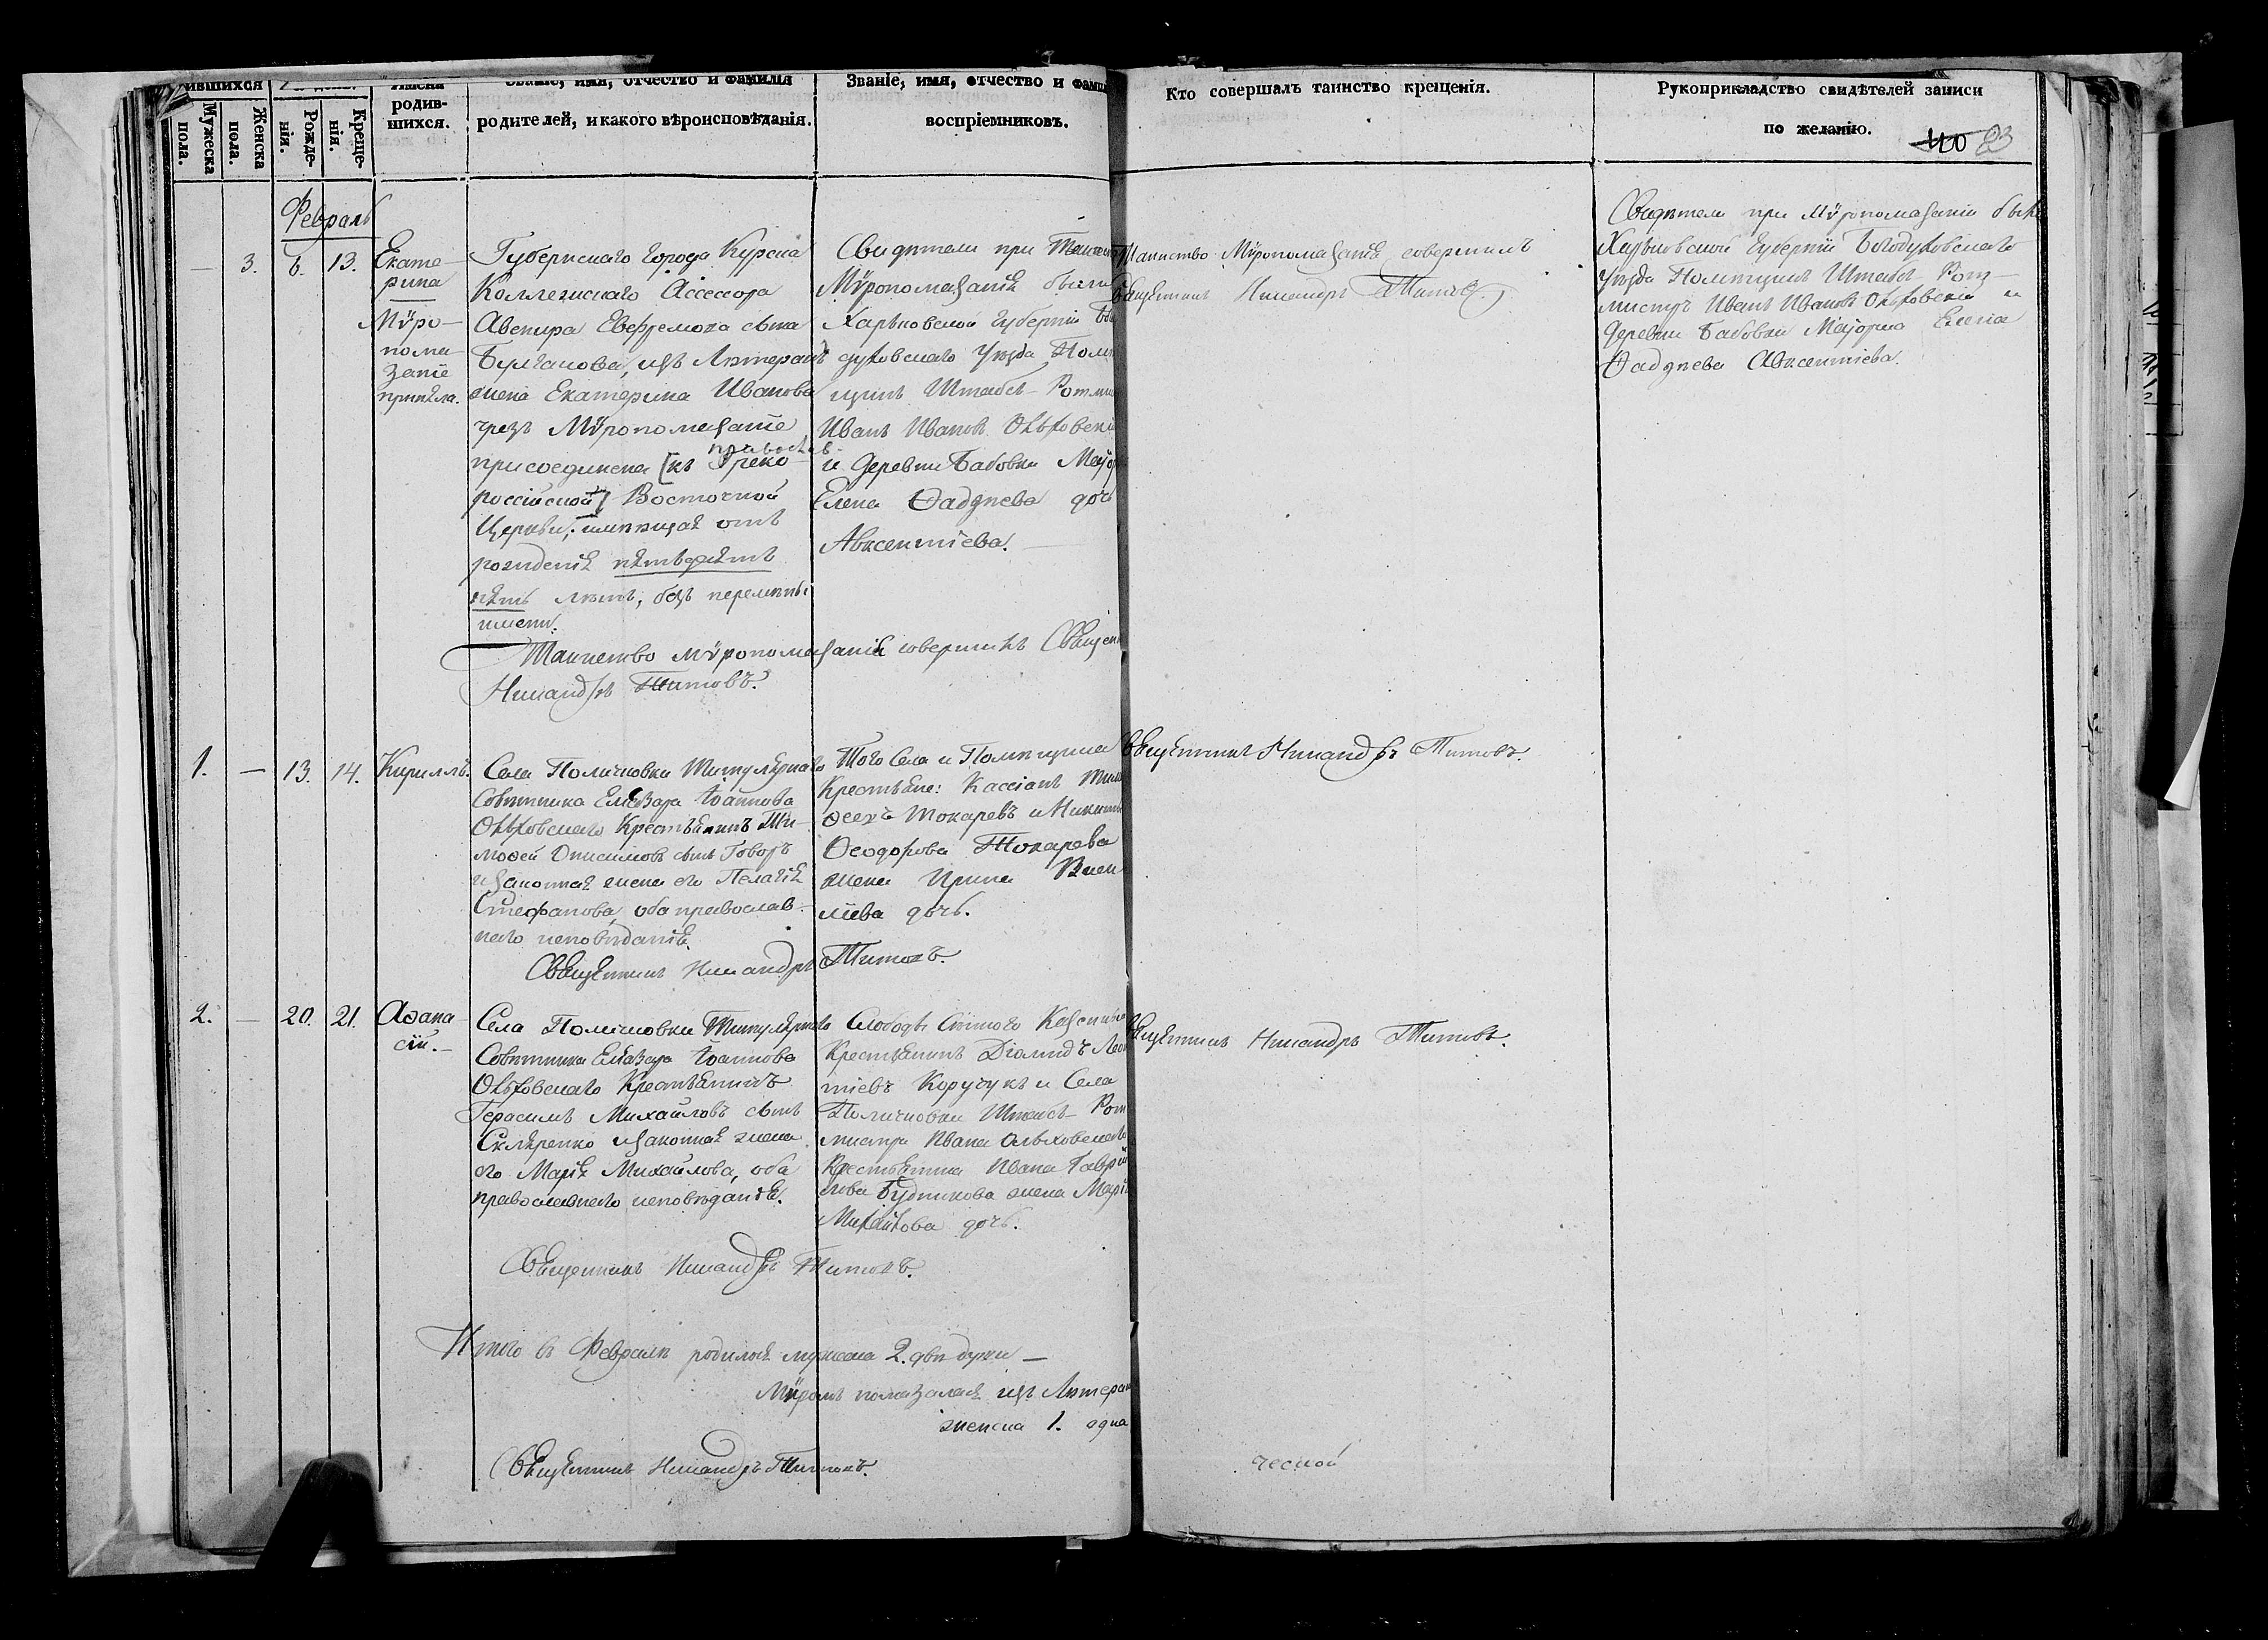 ившихся
Мужеска пола.
Женска пола.
Рожде-
нія.
Креще-
нія.
Имена
родив-
шихся.
Званіе, имя, отчество и фамилія
родителей, и какого вѣроисповѣданія.
Званіе, имя, отчество и фами
воспріемниковъ.
Кто совершалъ таинство крещенія.
Рукоприкладство свидѣтелей записи
по желанію.
110 83
Февраль
— 3. 6. 13.
Екате-
рина
Мѵро-
пома-
заніе
приняла.
Губернскаго города Курска
Коллежскаго Ассесора
Авенира Евфремова сына
Булгакова, изъ Лютеранъ
жена Екатерина Иванова
чрезъ Мѵропомазаніе
православ-
присоединена [къ Греко-
россійской] Восточной
Церкви, имѣющая отъ
рожденія пятьдесятъ
пять лѣтъ, безъ перемѣны
имени.
Таинство мѵропомазанія совершилъ Священ
Никандръ Титовъ.
Свидѣтели при Таинств
Мѵропомазанія были
Харьковской Губерніи Бо
духовскаго Уѣзда Помѣ
щикъ Штабсъ-Ротми
Иванъ Ивановъ Ольховскі
и деревни Бабовки Маіор
Елена Ѳаддѣева доч
Авксентіева. —
Таинство Мѵропомазанія совершилъ
Священникъ Никандръ Титовъ.
Свидѣтели при Мѵропомазаніи были
Харьковской Губерніи Богодуховскаго
Уѣзда Помѣщикъ Штабсъ-Рот-
мистръ Иванъ Ивановъ Ольховскій и
деревни Бабовки Маіорша Елена
Ѳаддѣева Авксентіева.
1. — 13. 14.
Кириллъ.
Села Поличковки Титулярнаго
Совѣтника Елеазара Іоаннова
Ольховскаго Крестьянинъ Ти-
моѳей Онисимовъ сынъ Говоръ
и законная жена его Пелагія
Стефанова, оба православ-
наго исповѣданія.
Священникъ Никандръ Титовъ.
Того Села и Помѣщика
Крестьяне: Кассіанъ Тим
ѳеевъ Токаревъ и Никит
Ѳеодорова Токарева
жена Ирина Васи
ліева дочь.
Священникъ Никандръ Титовъ.
2. — 20. 21.
Аѳана-
сій. —
Села Поличковки Титулярнаго
Совѣтника Елеазара Іоаннова
Ольховскаго Крестьянинъ
Герасимъ Михайловъ сынъ
Скляренко и законная жена
его Марія Михайлова, оба
православнаго исповѣданія.
Слободы Сѣннаго Казенны
Крестьянинъ Діомидъ Леон
тіевъ Корчукъ и Села
Поличковки Штабсъ-Рот
мистра Ивана Ольховскаго
Крестьянина Ивана Гаврі
лова Будникова жена Марія
Михайлова дочь.
Священникъ Никандръ Титовъ.
Священникъ Никандръ Титовъ.
Итого въ Февралѣ родилося мужеска 2. двѣ души —
Мѵромъ помазалася изъ Лютеран
женска 1. одна
Священникъ Никандръ Титовъ.
ческой